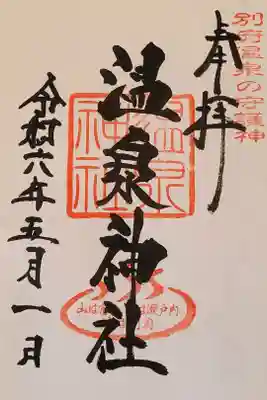 別府温泉の守護神
奉拝
温泉神社
温泉
神社
令和六年五月一日